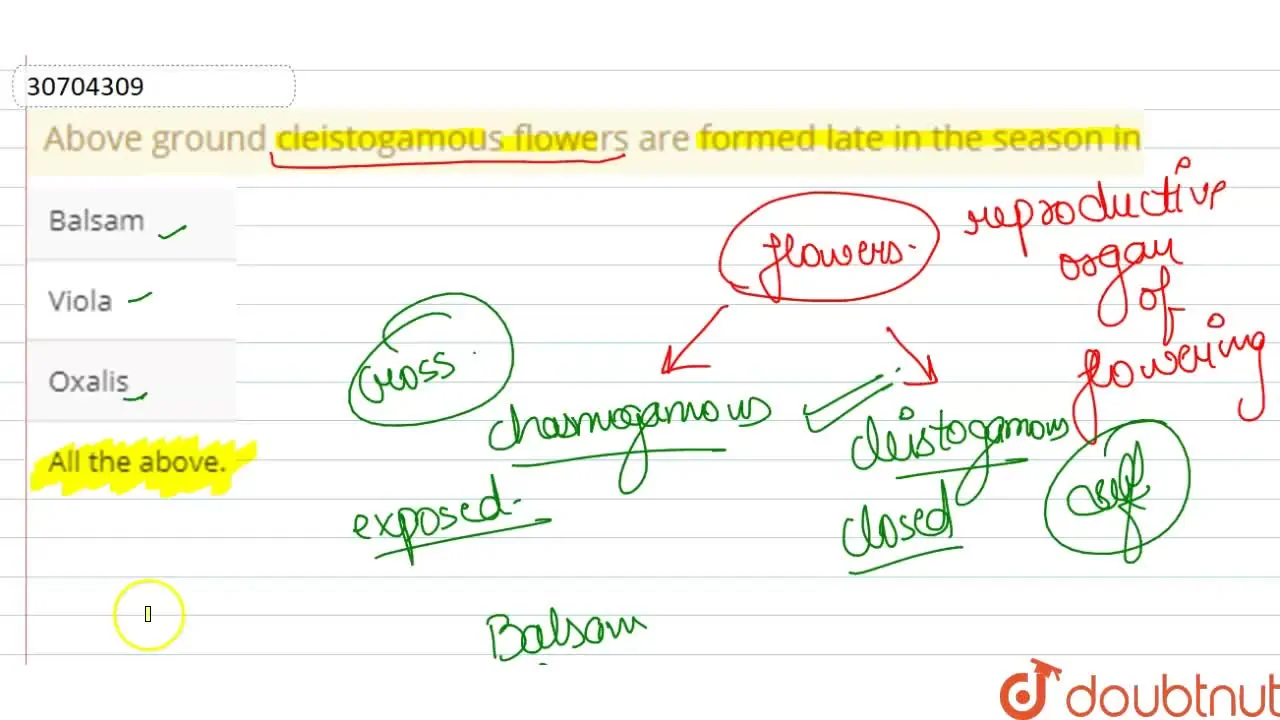 30704309
Above ground cleistogamous flowers are formed late in the season in
Balsam
Viola
Oxalis
All the above.
flowers.
reproductive
organ
of
flowering
cross
chasmogamous
exposed
cleistogamous
closed
self
Balsam
doubtnut